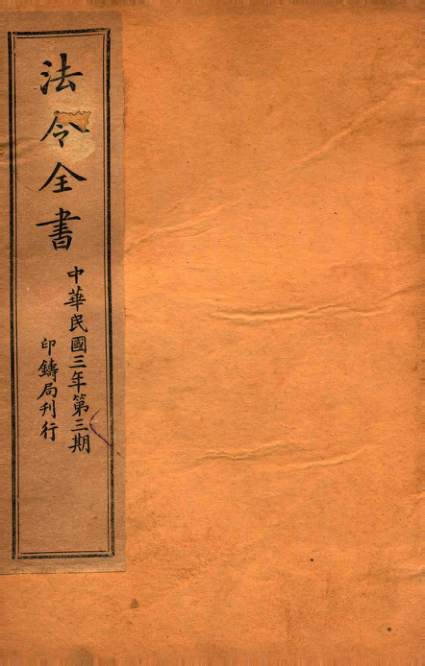 法令全書
中華民國三年第三期
印鑄局刊行